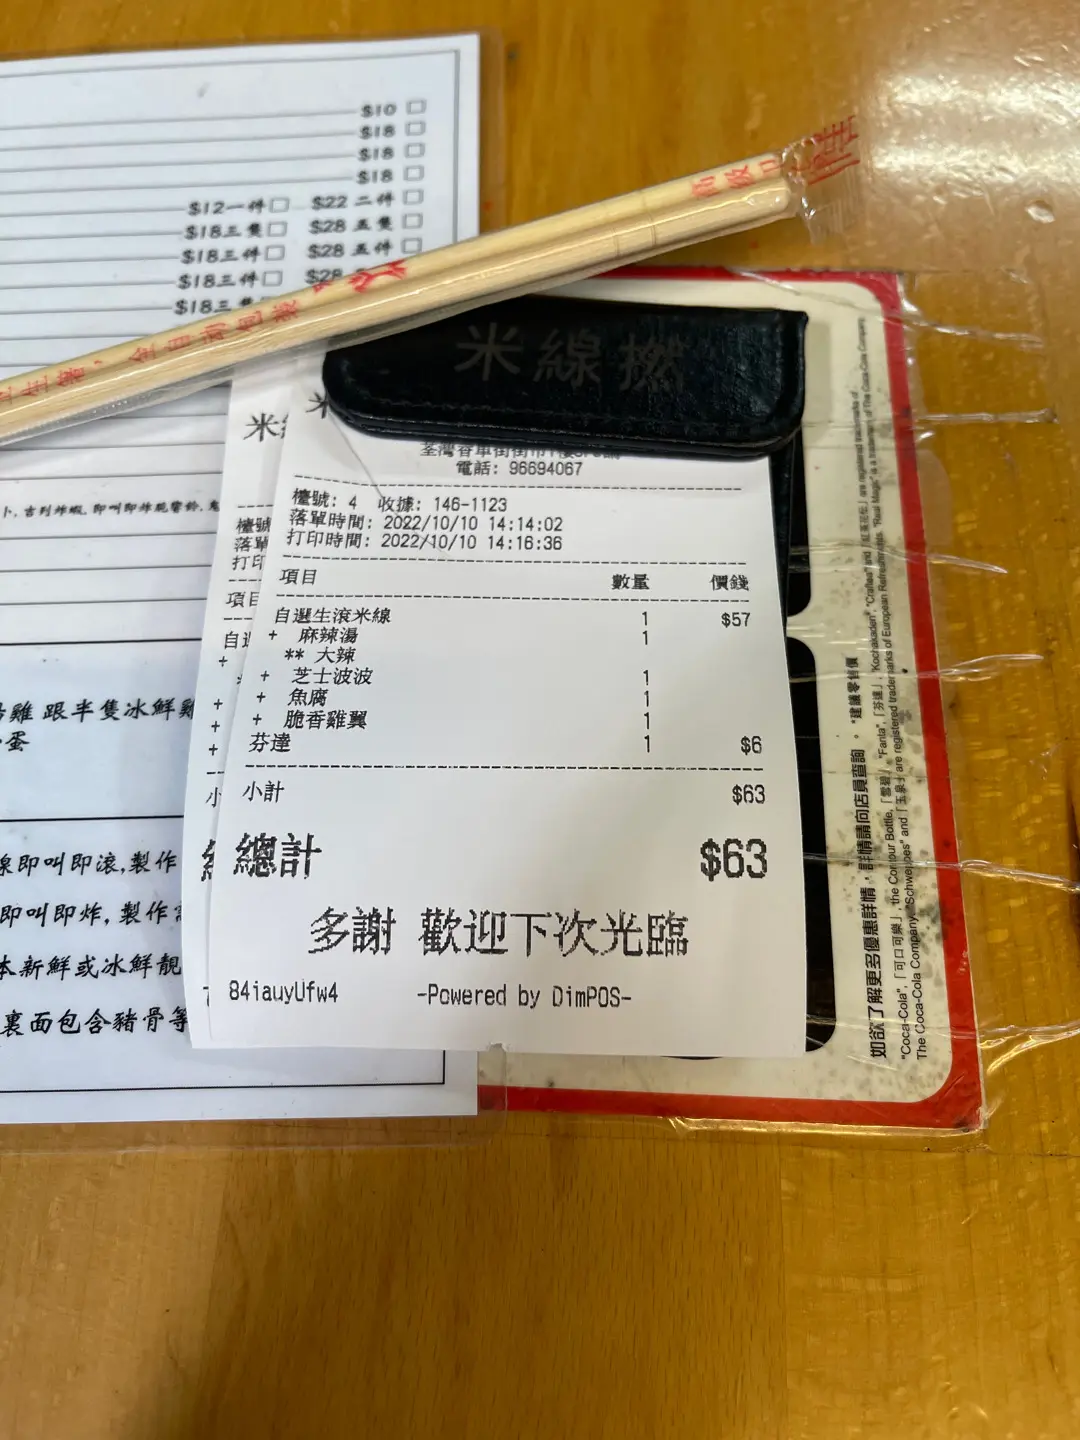 $10
$18
$18
$18
$12一件 $22 二件
$18三隻 $28 五隻
$18三件 $28 五件
$18三件 $28
$18三隻
全自動包裝
米線撚
電話: 96694067
檯號: 4 收據: 146-1123
落單時間: 2022/10/10 14:14:02
打印時間: 2022/10/10 14:16:36
項目 數量 價錢
自選生滾米線 1 $57
+ 麻辣湯 1
** 大辣
+ 芝士波波 1
+ 魚腐 1
+ 脆香雞翼 1
芬達 1 $6
小計 $63
總計 $63
多謝 歡迎下次光臨
84iauyUfw4 -Powered by DimPOS-
米
檯號
落單
打印
項目
自選
+
+
+
+
小
吉列炸蝦, 即叫即炸脆響鈴,
雞 跟半隻冰鮮雞
蛋
線即叫即滾,製作
即叫即炸, 製作
本新鮮或冰鮮靚
裏面包含豬骨等
如欲了解更多優惠詳情，詳情請向店員查詢。 *建議零售價
"Coca-Cola", 「可口可樂」, the Contour Bottle, 「雪碧」, "Fanta", 「芬達」, "Kochakaden", "Craftea" and 「紅茶花伝」 are registered trademarks of
The Coca-Cola Company. "Schweppes" and 「玉泉」 are registered trademarks of European Refreshments. "Real Magic" is a trademark of The Coca-Cola Company